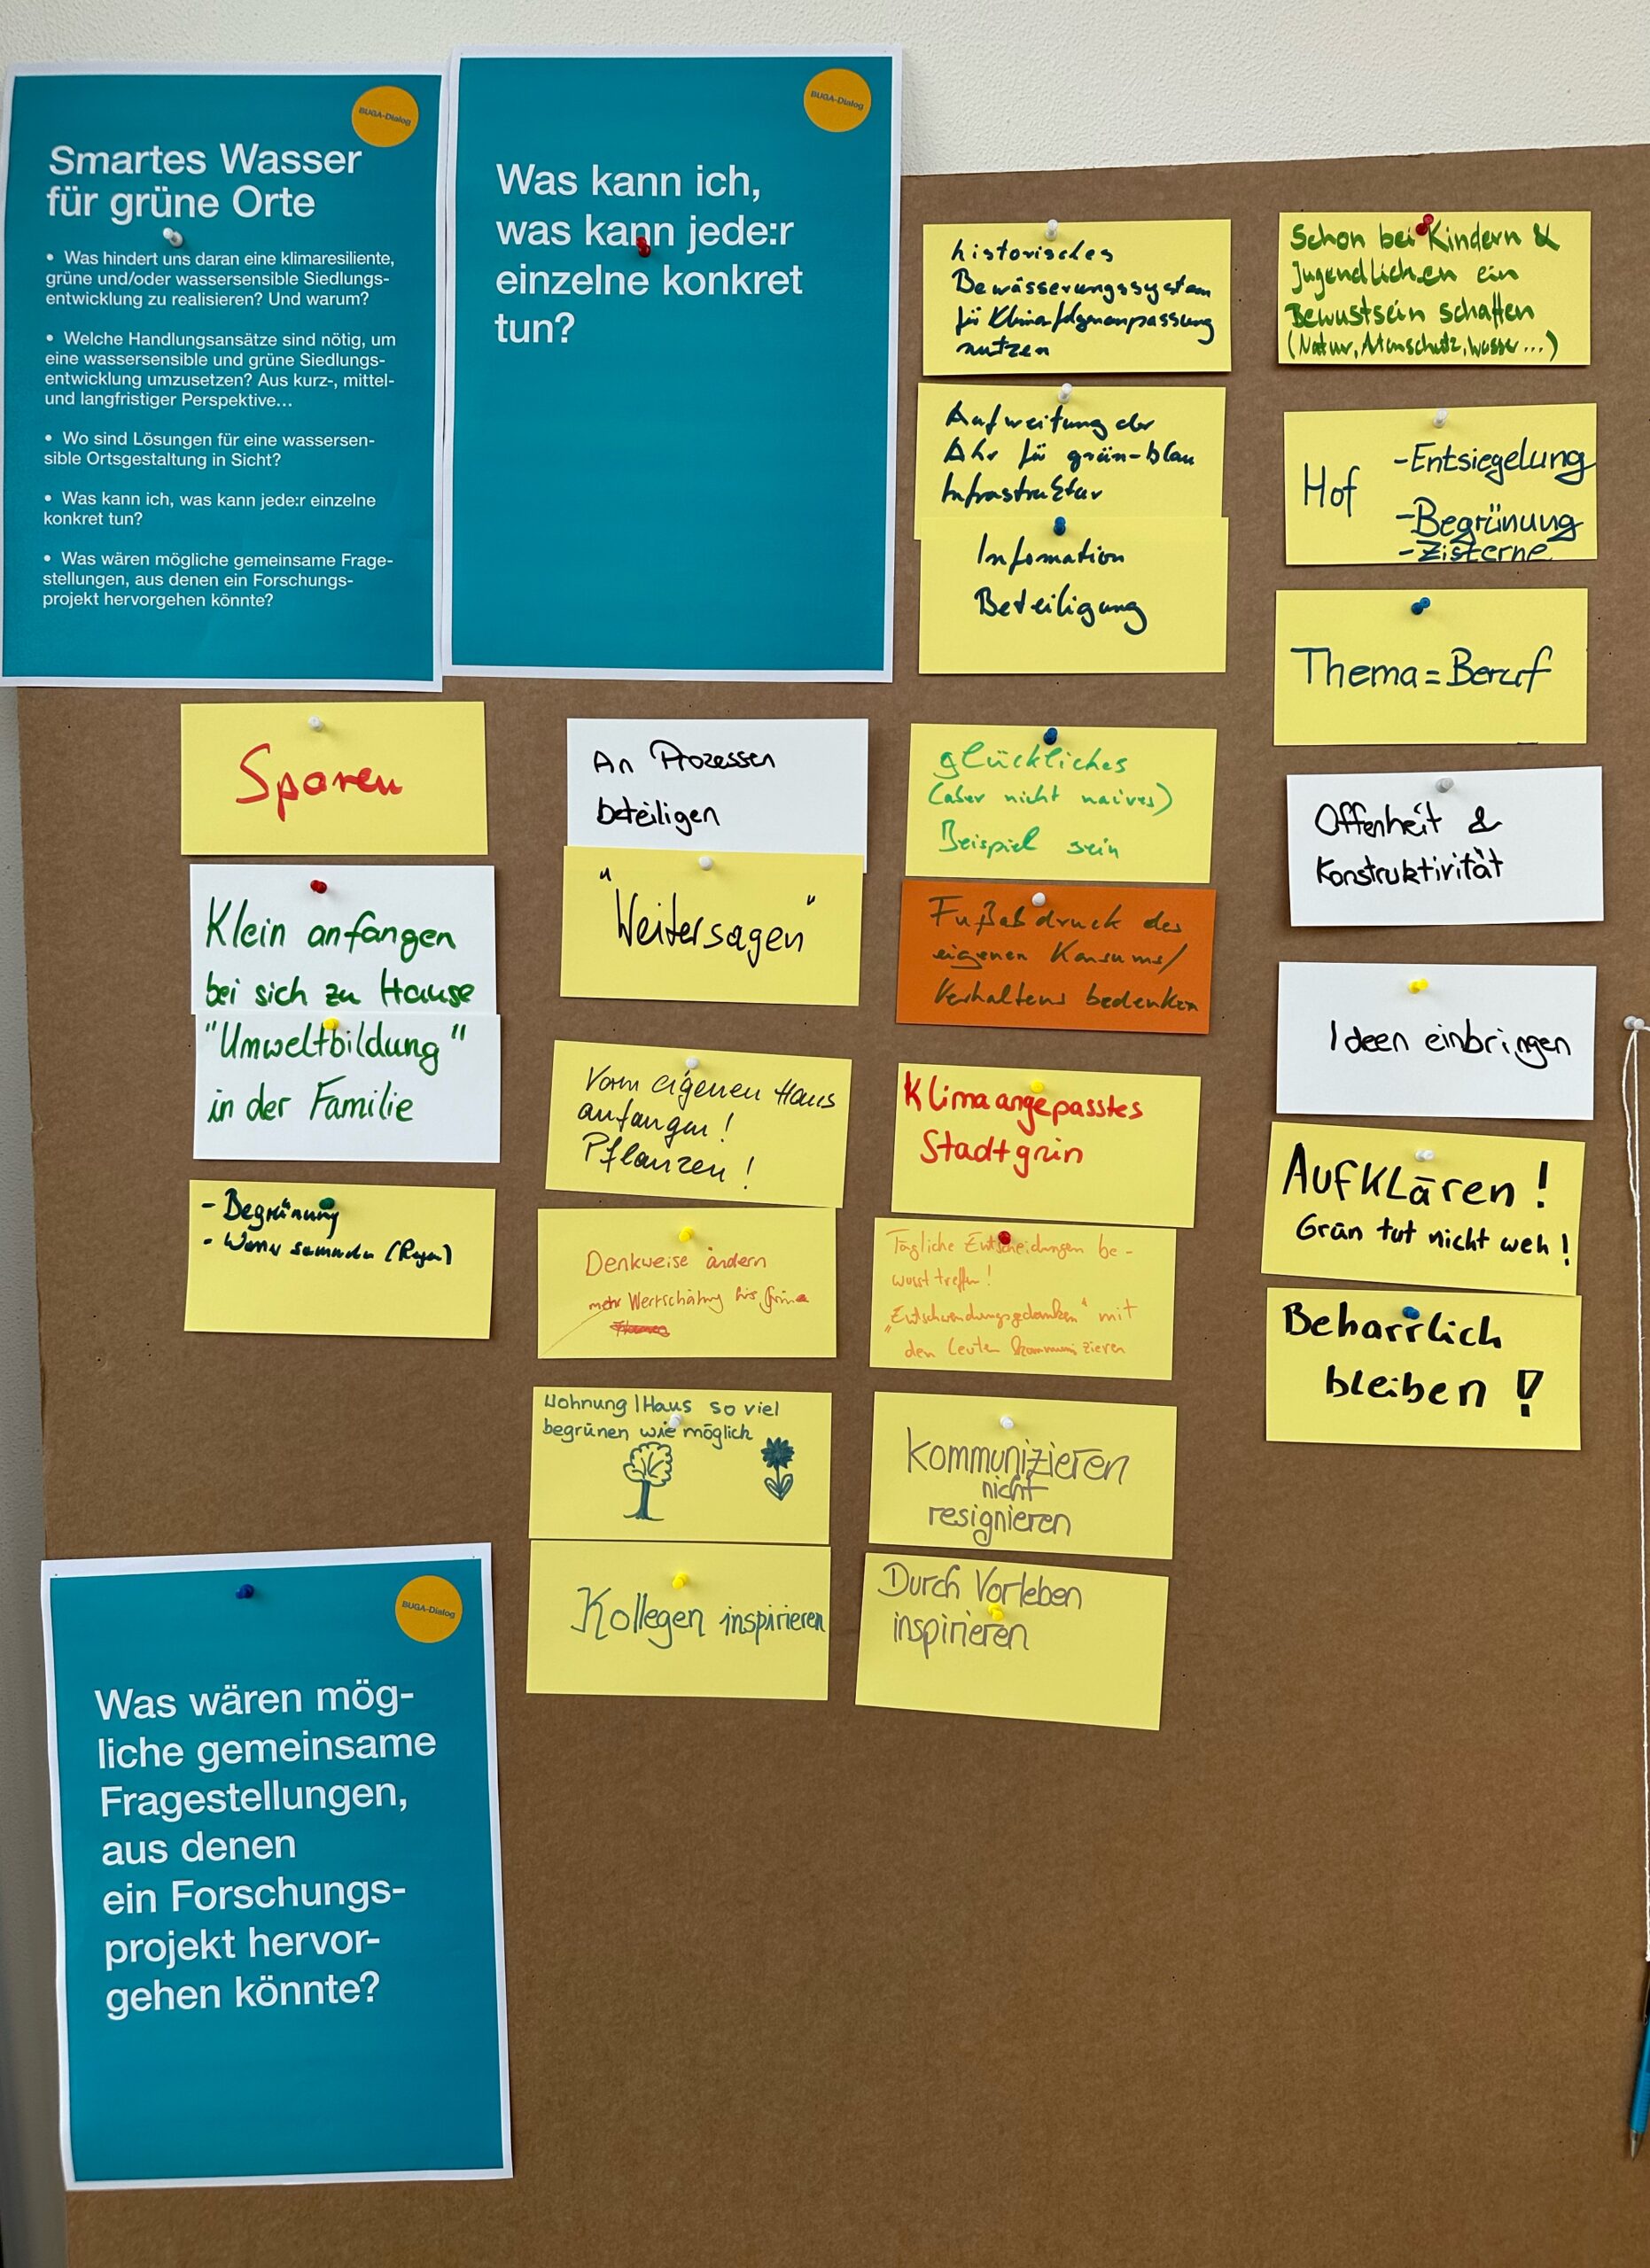 BUGA-Dialog
Smartes Wasser
für grüne Orte
• Was hindert uns daran eine klimaresiliente,
grüne und/oder wassersensible Siedlungs-
entwicklung zu realisieren? Und warum?
• Welche Handlungsansätze sind nötig, um
eine wassersensible und grüne Siedlungs-
entwicklung umzusetzen? Aus kurz-, mittel-
und langfristiger Perspektive...
• Wo sind Lösungen für eine wassersen-
sible Ortsgestaltung in Sicht?
• Was kann ich, was kann jede:r einzelne
konkret tun?
• Was wären mögliche gemeinsame Frage-
stellungen, aus denen ein Forschungs-
projekt hervorgehen könnte?
BUGA-Dialog
Was kann ich,
was kann jede:r
einzelne konkret
tun?
Sparen
Klein anfangen
bei sich zu Hause
"Umweltbildung"
in der Familie
- Begrünung
- sammeln (Regen)
An Prozessen
beteiligen
"Weitersagen"
Vorm eigenen Haus
anfangen!
Pflanzen!
Denkweise ändern
mehr Wertschätzung fürs Grüne
Wohnung/Haus so viel
begrünen wie möglich
Kollegen inspirieren
historisches
Bewässerungssystem
für Klimafolgenanpassung
nutzen
Aufweitung der
Ahr für grün-blau
Infrastruktur
Infomation
Beteiligung
glückliches
(aber nicht naives)
Beispiel sein
Fußabdruck des
eigenen Konsums/
Verhaltens bedenken
Klimaangepasstes
Stadtgrün
Tägliche Entscheidungen be-
wusst treffen!
mit
den Leuten kommunizieren
Kommunizieren
nicht
resignieren
Durch Vorleben
inspirieren
Schon bei Kindern &
Jugendlichen ein
Bewustsein schaffen
(Natur, Wasser...)
Hof
- Entsiegelung
- Begrünung
- Zisterne
Thema = Beruf
Offenheit &
Konstruktivität
Ideen einbringen
Aufklären!
Grün tut nicht weh!
Beharrlich
bleiben!
BUGA-Dialog
Was wären mög-
liche gemeinsame
Fragestellungen,
aus denen
ein Forschungs-
projekt hervor-
gehen könnte?